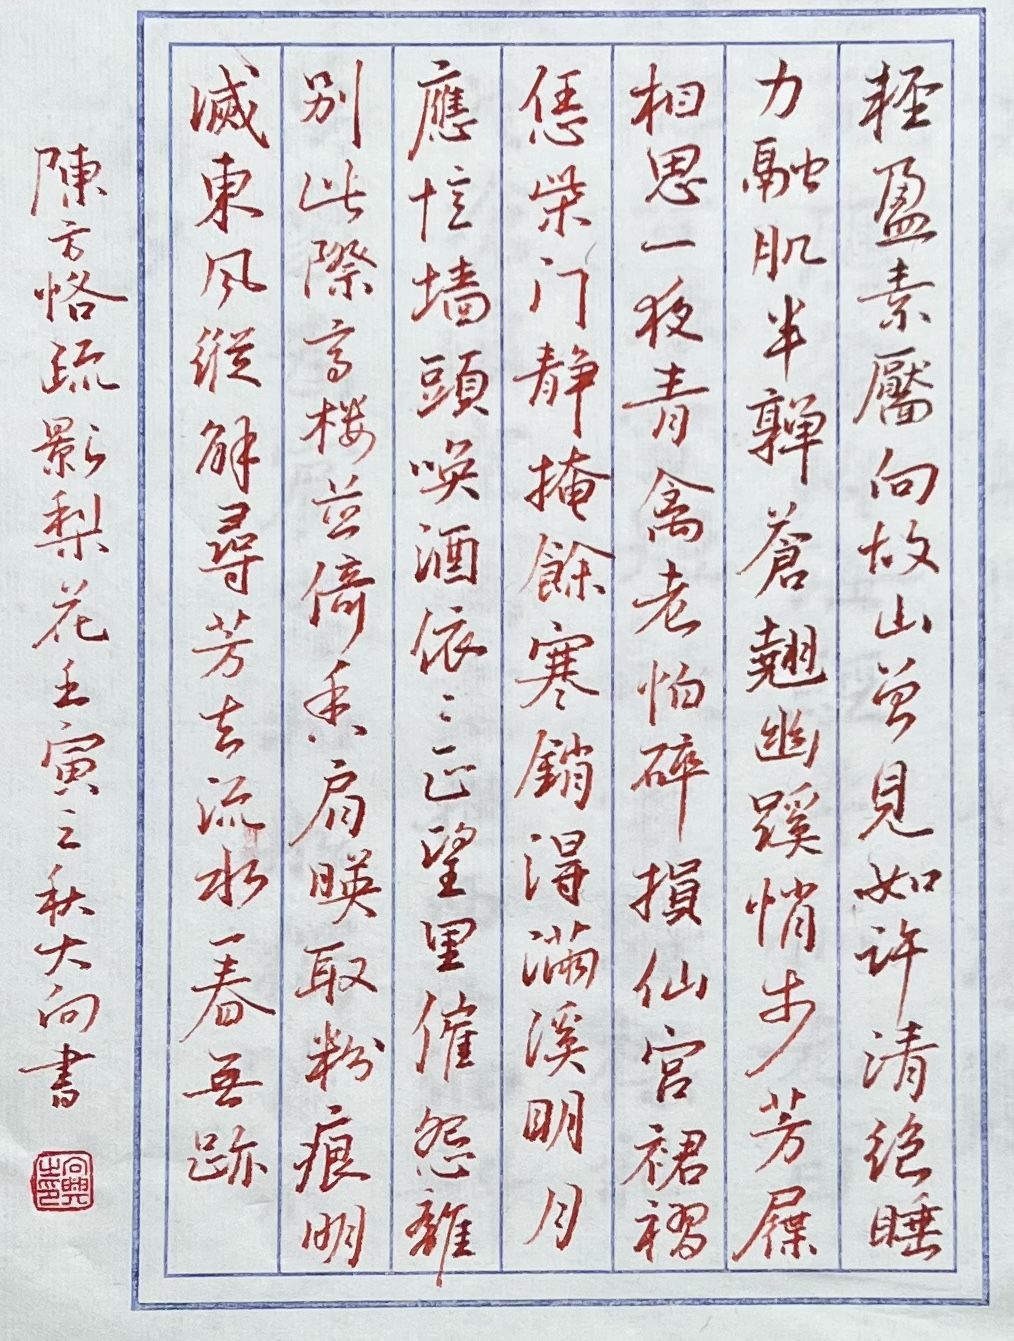 輕盈素靨向故山曾見如許清絕睡
力融肌半嚲蒼翹幽蹊悄步芳屧
相思一夜青禽老怕碎損仙宮裙褶
恁柴门静掩餘寒銷得滿溪明月
應憶墙頭喚酒依依正望里催怨離
别此際高楼並倚香肩暎取粉痕明
滅東风縱解尋芳去流水一春無跡
陳方恪疏影梨花壬寅之秋大向書